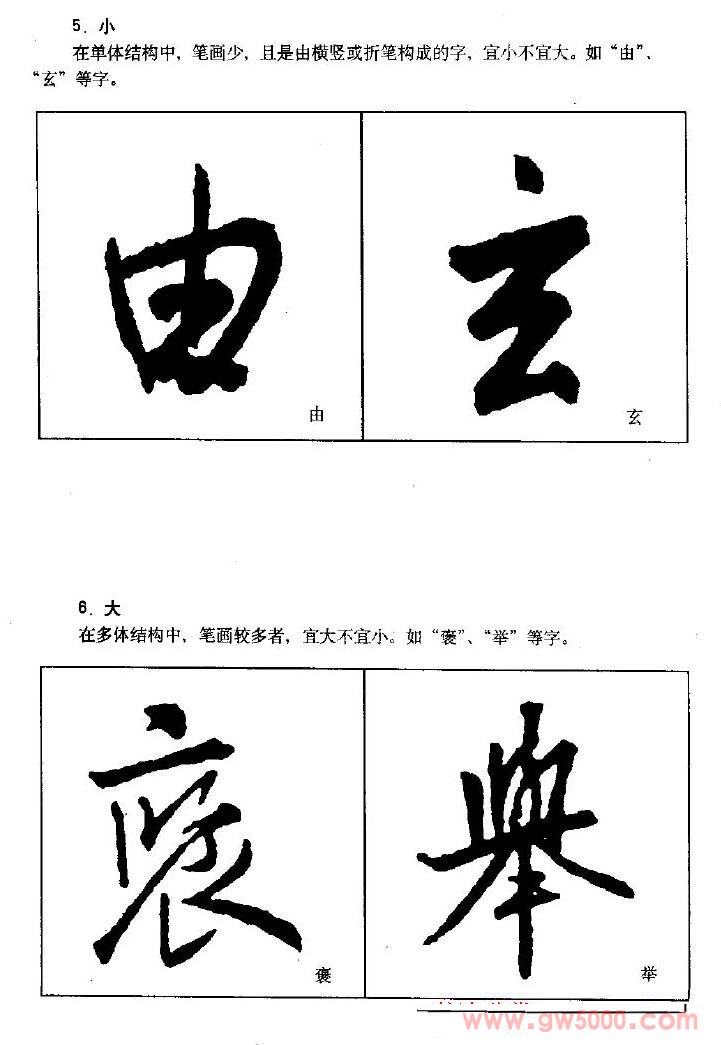 5. 小
在单体结构中，笔画少，且是由横竖或折笔构成的字，宜小不宜大。如“由”、
“玄”等字。
由 玄
由 玄
6. 大
在多体结构中，笔画较多者，宜大不宜小。如“褒”、“举”等字。
褒 舉
褒 举
www.gw5000.com